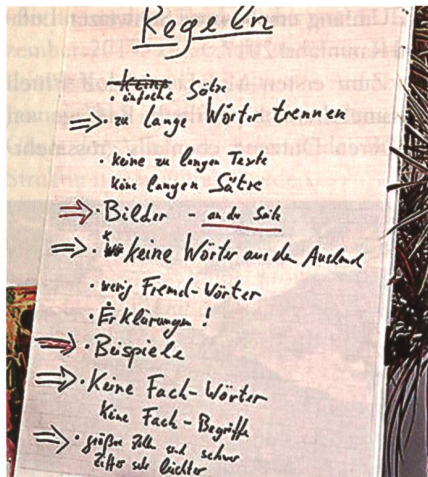 Regeln
keine
· einfache Sätze
⇒ · zu lange Wörter trennen
· keine zu langen Texte
keine langen Sätze
⇒ · Bilder - an der Seite
⇒ · keine Wörter aus dem Ausland
· wenig Fremd-Wörter
· Erklärungen!
⇒ · Beispiele
⇒ · Keine Fach-Wörter
Keine Fach-Begriffe
⇒ · größere und schwer